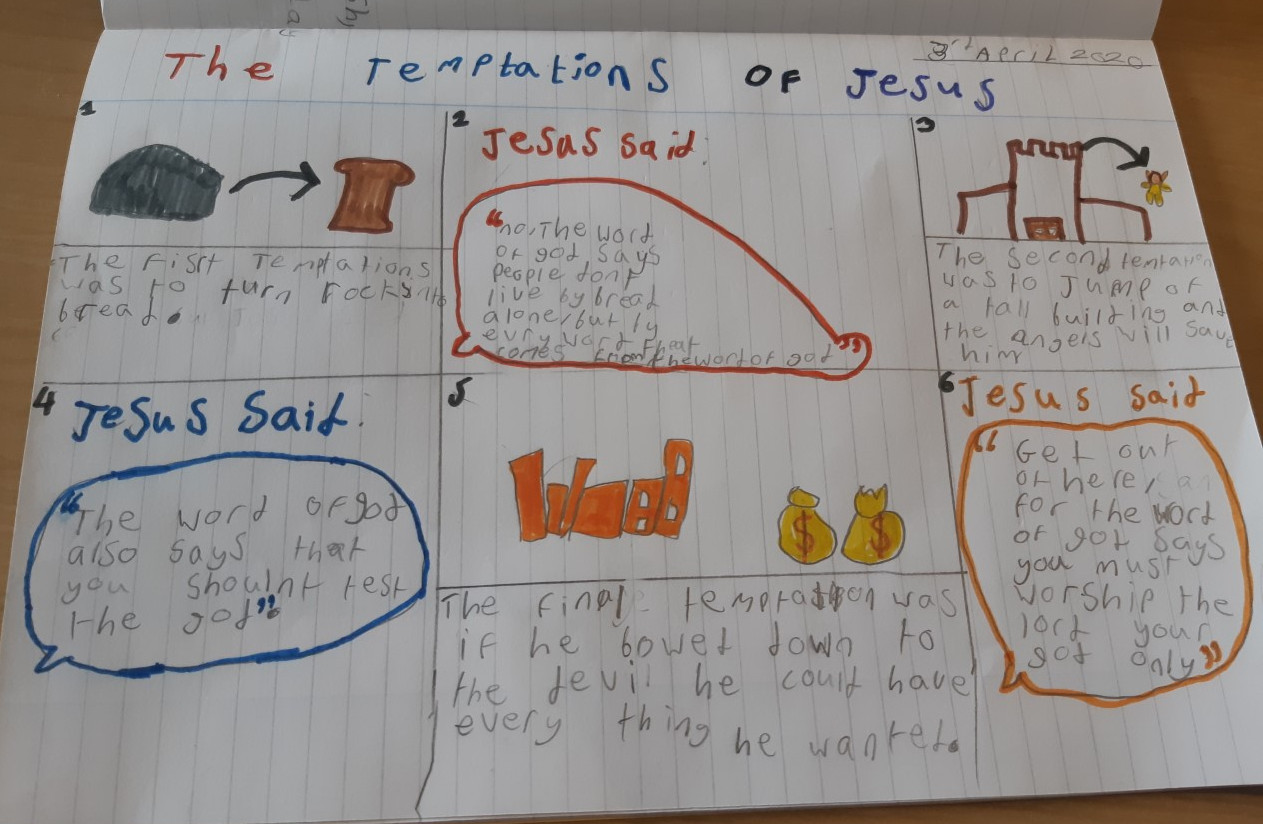 3rd April 2020
The Temptations Of Jesus
1
The fisrt Temptations
was to turn rocks into
bread.
2
Jesus said:
"no, The word
of god says
people dont
live by bread
alone, but by
evry word that
comes from the word of god"
3
The second temtation
was to Jump of
a tall building and
the angels will save
him
4
Jesus Said:
"The word of god
also says that
you shoulnt test
the god"
5
$ $
The final temptation was
if he bowed down to
the devil he could have
every thing he wanted.
6
Jesus said
"Get out
of here,
for the word
of god says
you must
worship the
lord your
god only"